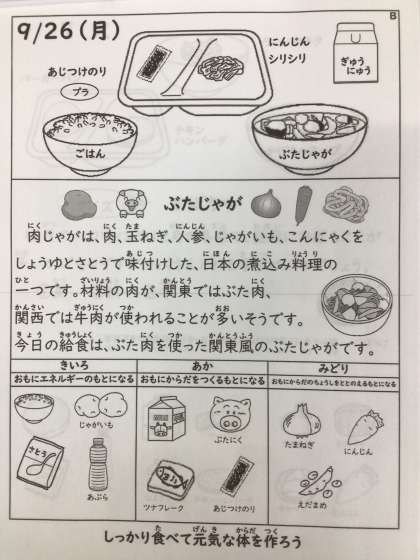 B
9/26(月)
にんじん
シリシリ
ぎゅう
にゅう
あじつけのり
プラ
ごはん
ぶたじゃが
ぶたじゃが
肉じゃがは、肉、玉ねぎ、人参、じゃがいも、こんにゃくを
しょうゆとさとうで味付けした、日本の煮込み料理の
一つです。材料の肉が、関東ではぶた肉、
関西では牛肉が使われることが多いそうです。
今日の給食は、ぶた肉を使った関東風のぶたじゃがです。
きいろ
あか
みどり
おもにエネルギーのもとになる
おもにからだをつくるもとになる
おもにからだのちょうしをととのえるもとになる
じゃがいも
さとう
あぶら
ぶたにく
ツナフレーク
あじつけのり
たまねぎ
にんじん
えだまめ
しっかり食べて元気な体を作ろう